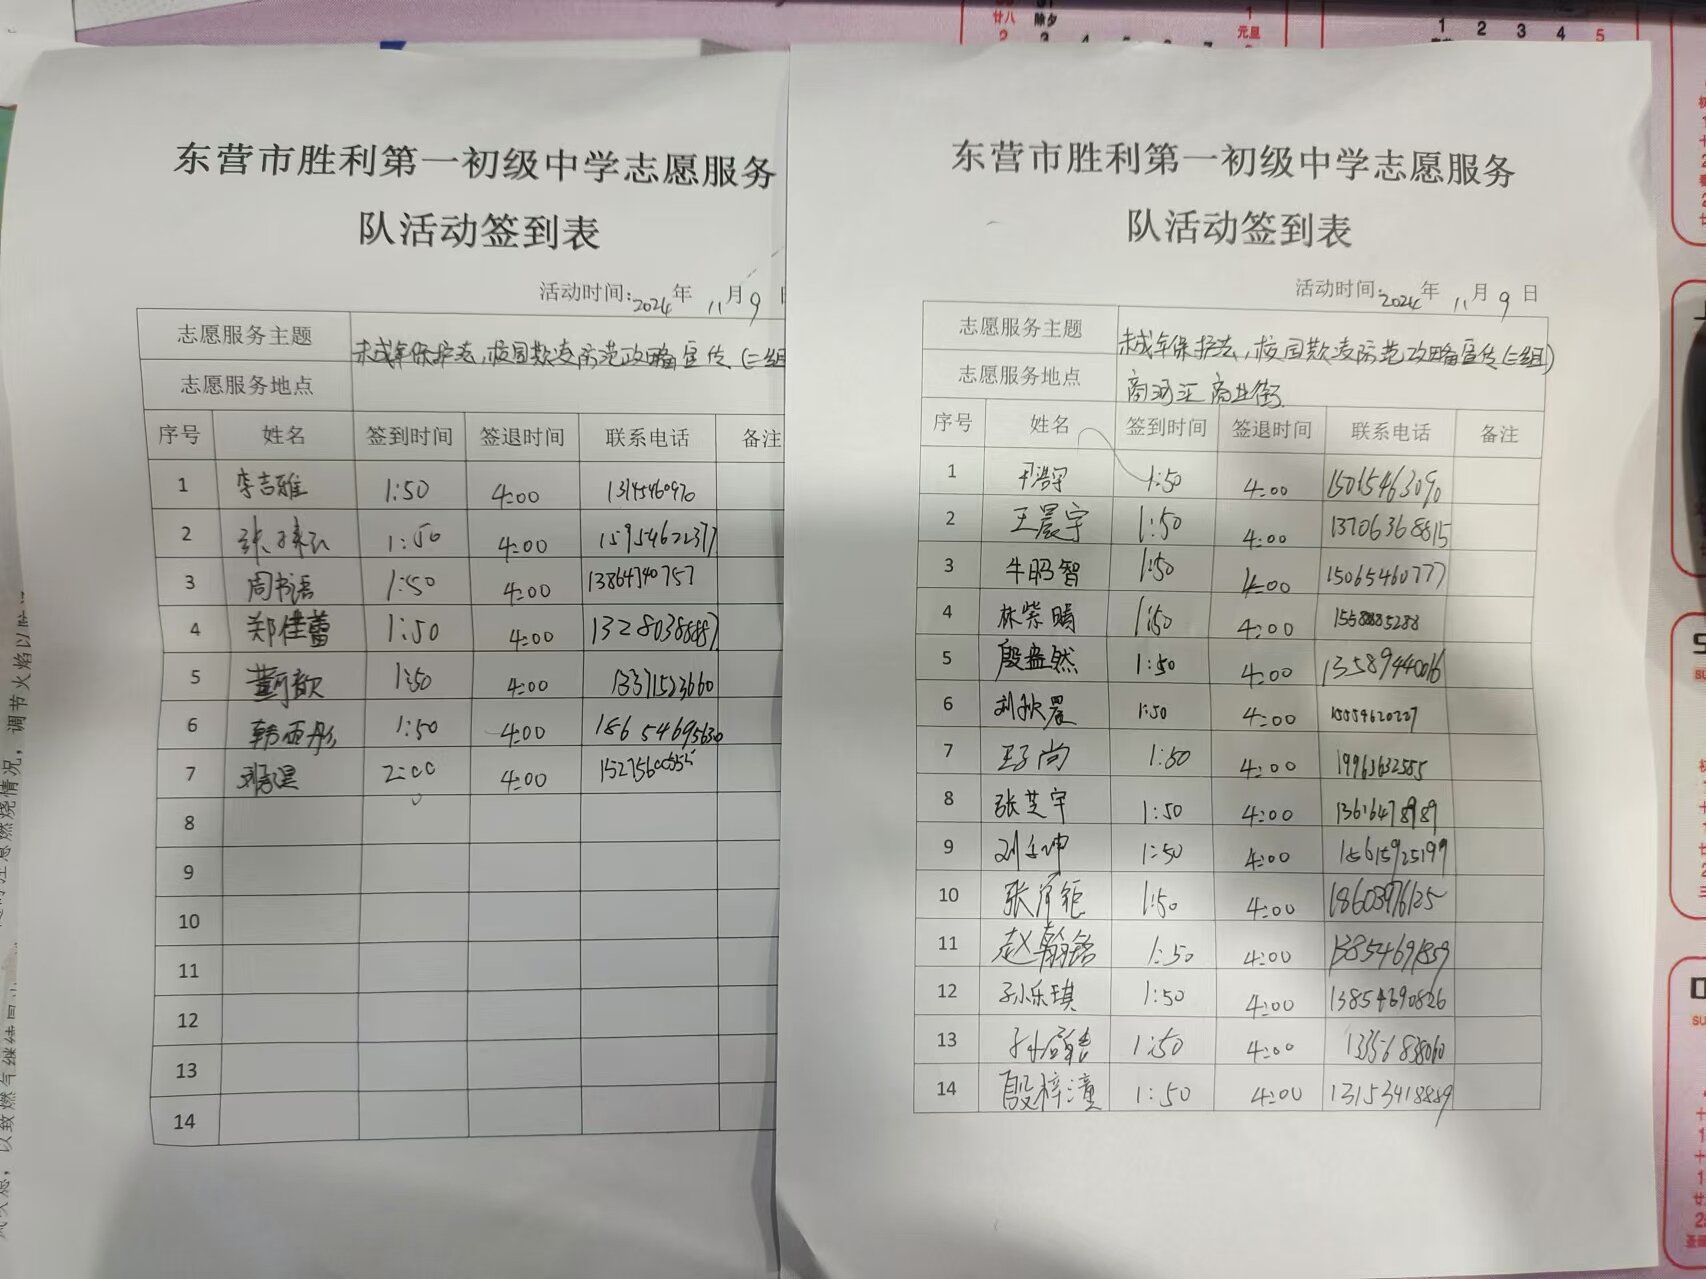 东营市胜利第一初级中学志愿服务
队活动签到表
活动时间:2024年 11月9日
志愿服务主题 未成年保护法,校园欺凌防范攻略宣传(二组
志愿服务地点
序号 姓名 签到时间 签退时间 联系电话 备注
1 李吉雅 1:50 4:00 13145460970
2 1:50 4:00 15954622377
3 周书语 1:50 4:00 13864740757
4 郑佳蕾 1:50 4:00 13280388887
5 董可歆 1:50 4:00 13371523660
6 韩雨彤 1:50 4:00 18654695630
7 2:00 4:00
8
9
10
11
12
13
14
东营市胜利第一初级中学志愿服务
队活动签到表
活动时间:2024年 11月9日
志愿服务主题 未成年保护法,校园欺凌防范攻略宣传(二组)
志愿服务地点 商河汇商业街
序号 姓名 签到时间 签退时间 联系电话 备注
1 1:50 4:00 15015463090
2 王晨宇 1:50 4:00 13706368815
3 牛昭智 1:50 4:00 15065460777
4 林紫晴 1:50 4:00
5 殷盎然 1:50 4:00 13589440016
6 刘秋晨 1:50 4:00
7 王子尚 1:50 4:00 19963632585
8 张芝宇 1:50 4:00 13616478989
9 1:50 4:00 15615925199
10 1:50 4:00 18603976125
11 赵翰铭 1:50 4:00 13854691859
12 孙乐琪 1:50 4:00 13854690826
13 1:50 4:00 13356838060
14 殷梓潼 1:50 4:00 13153418889